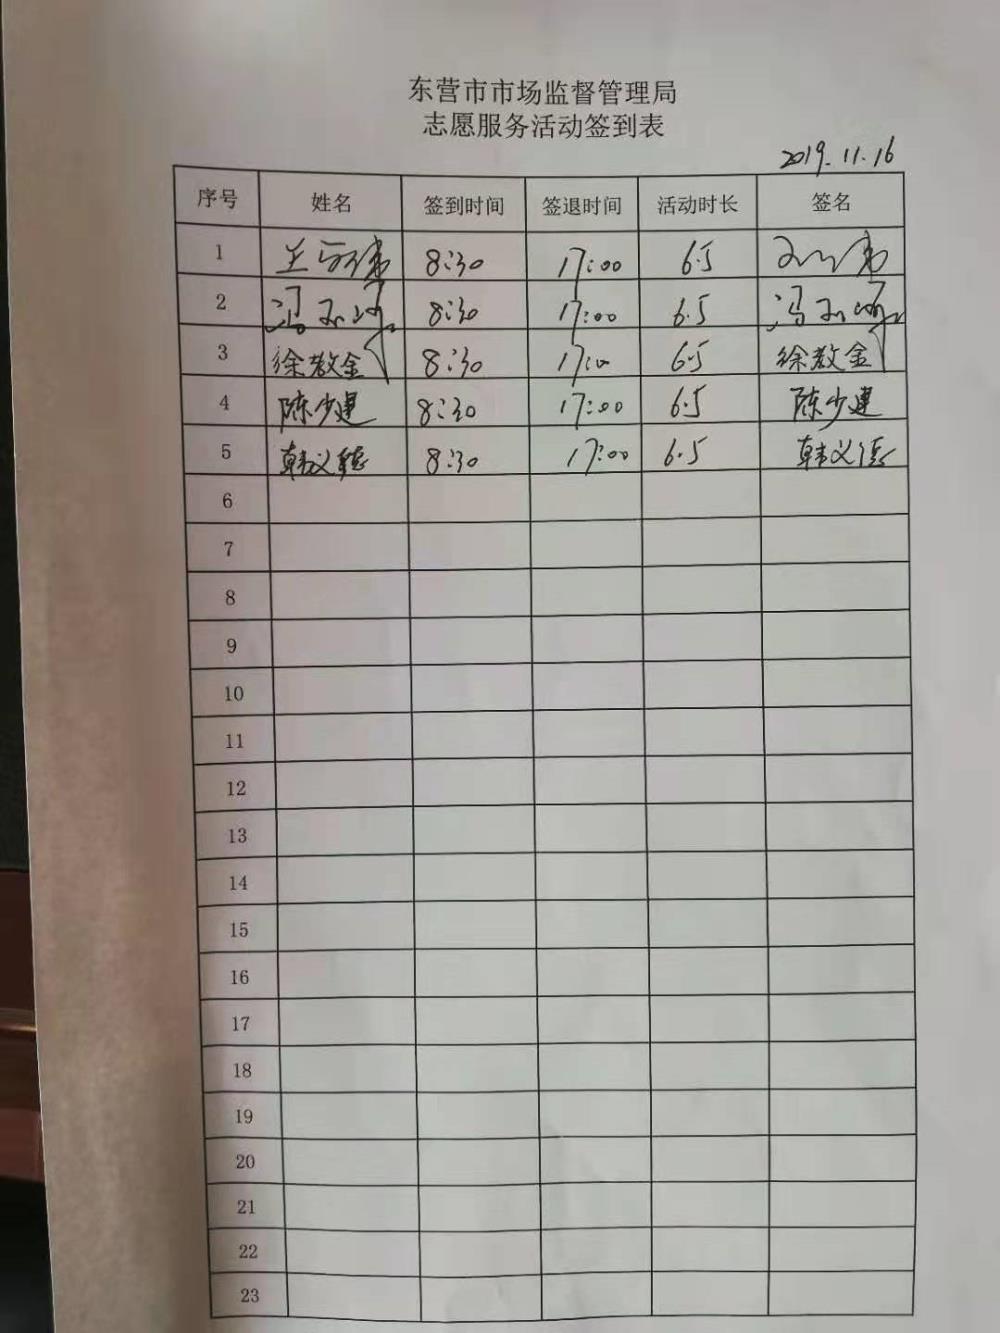 东营市市场监督管理局
志愿服务活动签到表
2019.11.16
序号 姓名 签到时间 签退时间 活动时长 签名
1 8:30 17:00 6.5
2 冯 8:30 17:00 6.5 冯
3 徐教金 8:30 17:00 6.5 徐教金
4 陈少建 8:30 17:00 6.5 陈少建
5 韩义德 8:30 17:00 6.5 韩义德
6
7
8
9
10
11
12
13
14
15
16
17
18
19
20
21
22
23